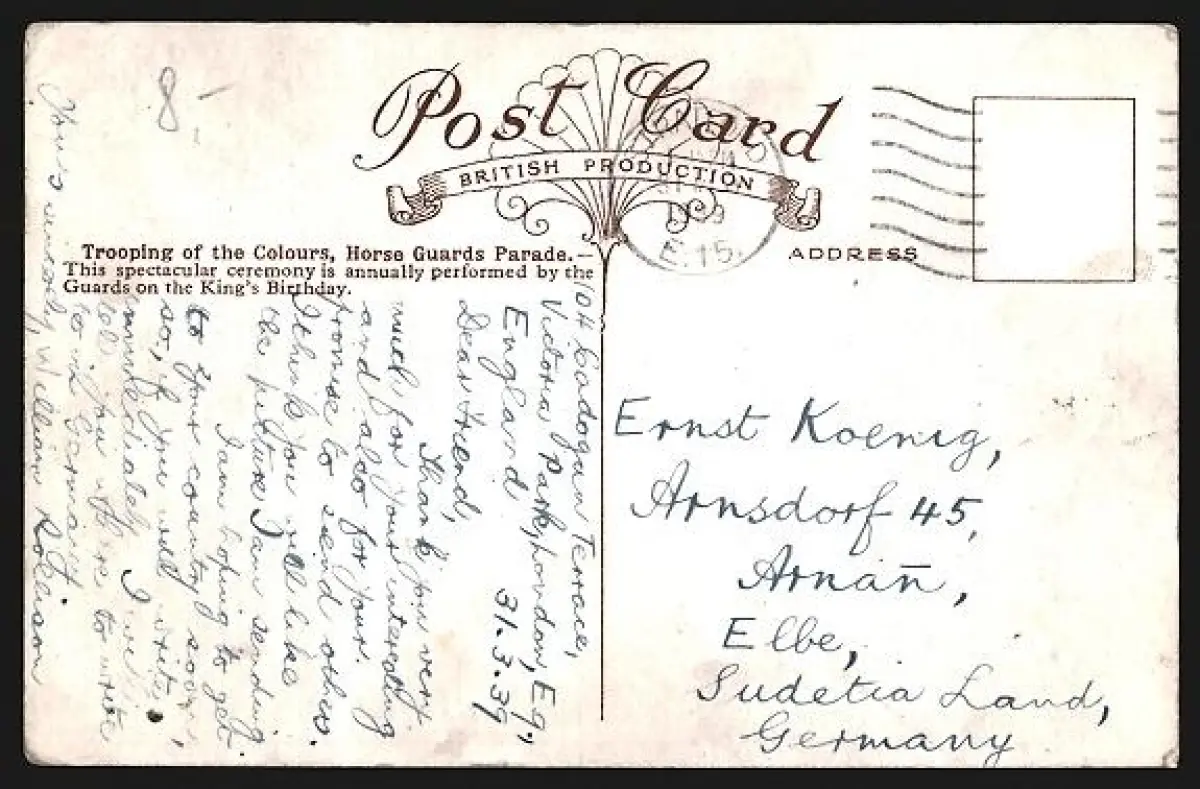 Post Card
BRITISH PRODUCTION
ADDRESS
E.15.
Trooping of the Colours, Horse Guards Parade.—
This spectacular ceremony is annually performed by the
Guards on the King's Birthday.
104 Cadogan Terrace,
Victoria Park, London, E9,
England 31.3.39
Dear Friend,
Thank you very
much for your interesting
and also for yours.
promise to send others.
I think you will like
the picture I am sending
I am hoping to get
to your country soon,
so, if you will write,
immediately I will
tell you where to write
to in Germany
Yours sincerely, William Rollison
8
Ernst Koenig,
Arnsdorf 45,
Arnan̄,
Elbe,
Sudetia Land,
Germany